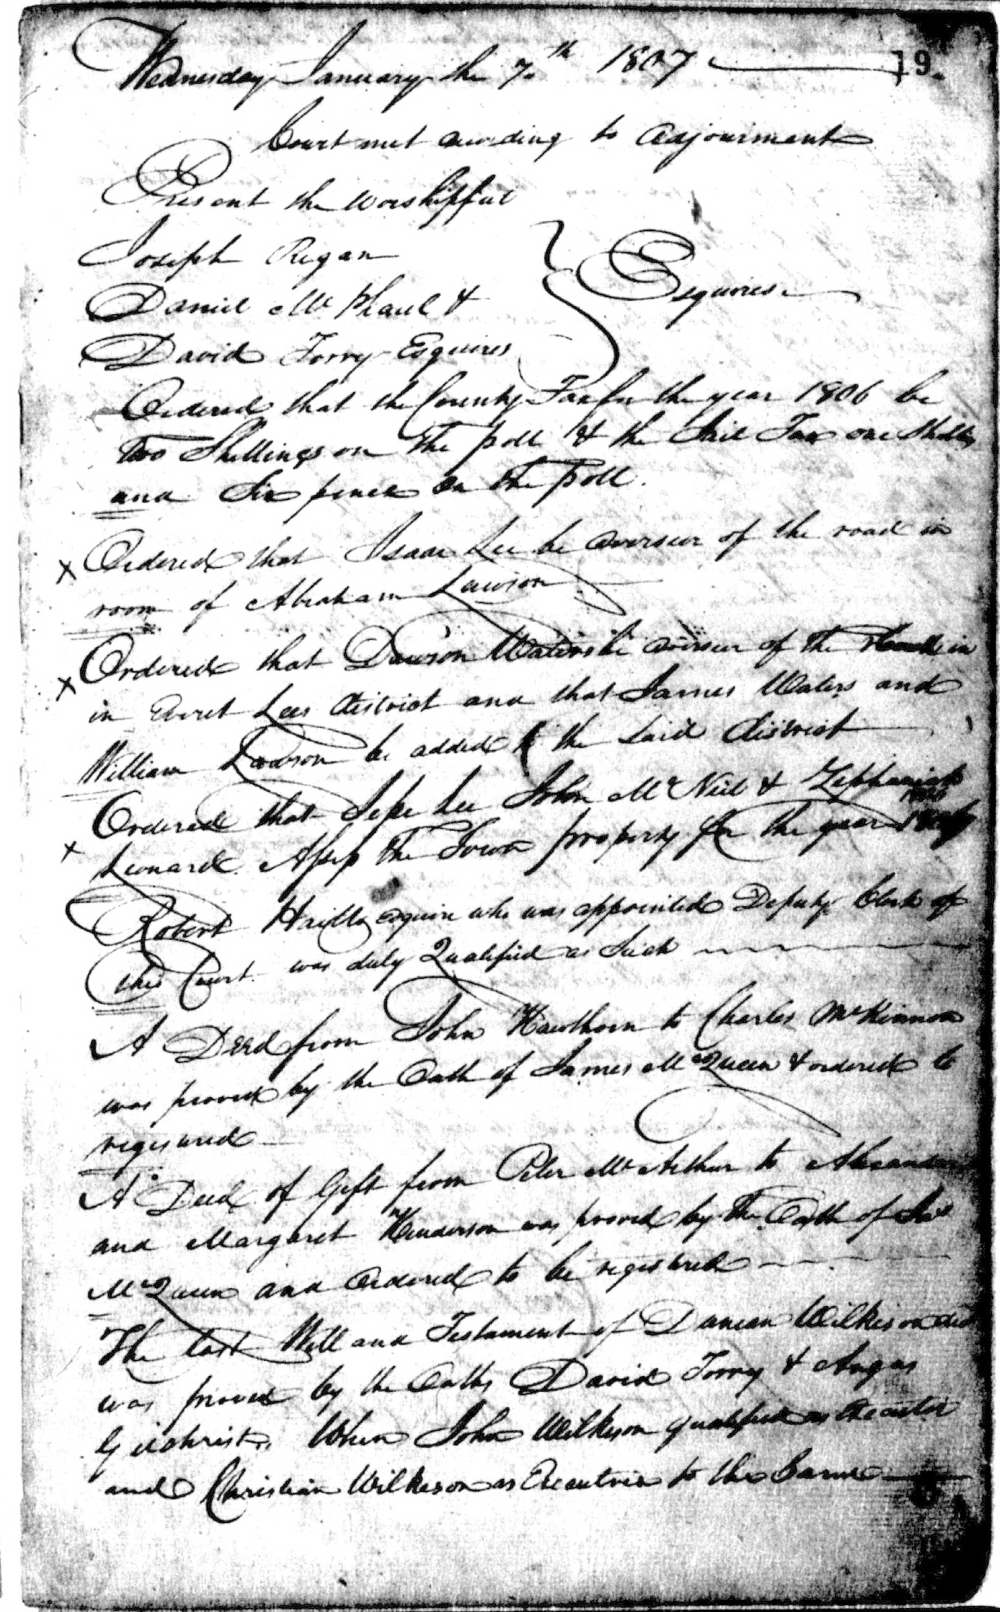 Wednesday January the 7th 1807 19
Court met acording to adjourment
Present the worshipfull
Joseph Regan
Daniel McPhaul &
David Torry Esquires
Esquires
Ordered that the County Tax for the year 1806 be
two Shillings on the poll & the Jail Tax one Shilling
and Six pence on the poll.
X Ordered that Isaac Lee be overseer of the road in
room of Abraham Lawson
X Ordered that Dawson Waters be overseer of the Road in
in Everet Lees district and that James Waters and
William Lawson be added to the said district
X Ordered that Jesse Lee John McNeil & Zeppaniah
Leonard Assess the Town property for the year
Robert Hails esquire who was appointed Deputy Clerk of
this Court was duly Qualified as Such
A Deed from John Hawthorn to Charles McKinnon
was proved by the Oath of James McQueen & ordered to
registured
A Deed of Gift from Peter McArthur to Alexander
and Margaret Henderson was proved by the Oath of Jas
McQueen and Ordered to be registured
The last Will and Testament of Duncan Wilkeson decd
was proved by the Oaths David Torry & Angus
Gilchrist. When John Wilkeson qualified as Executor
and Christian Wilkeson as Executrix to the Same